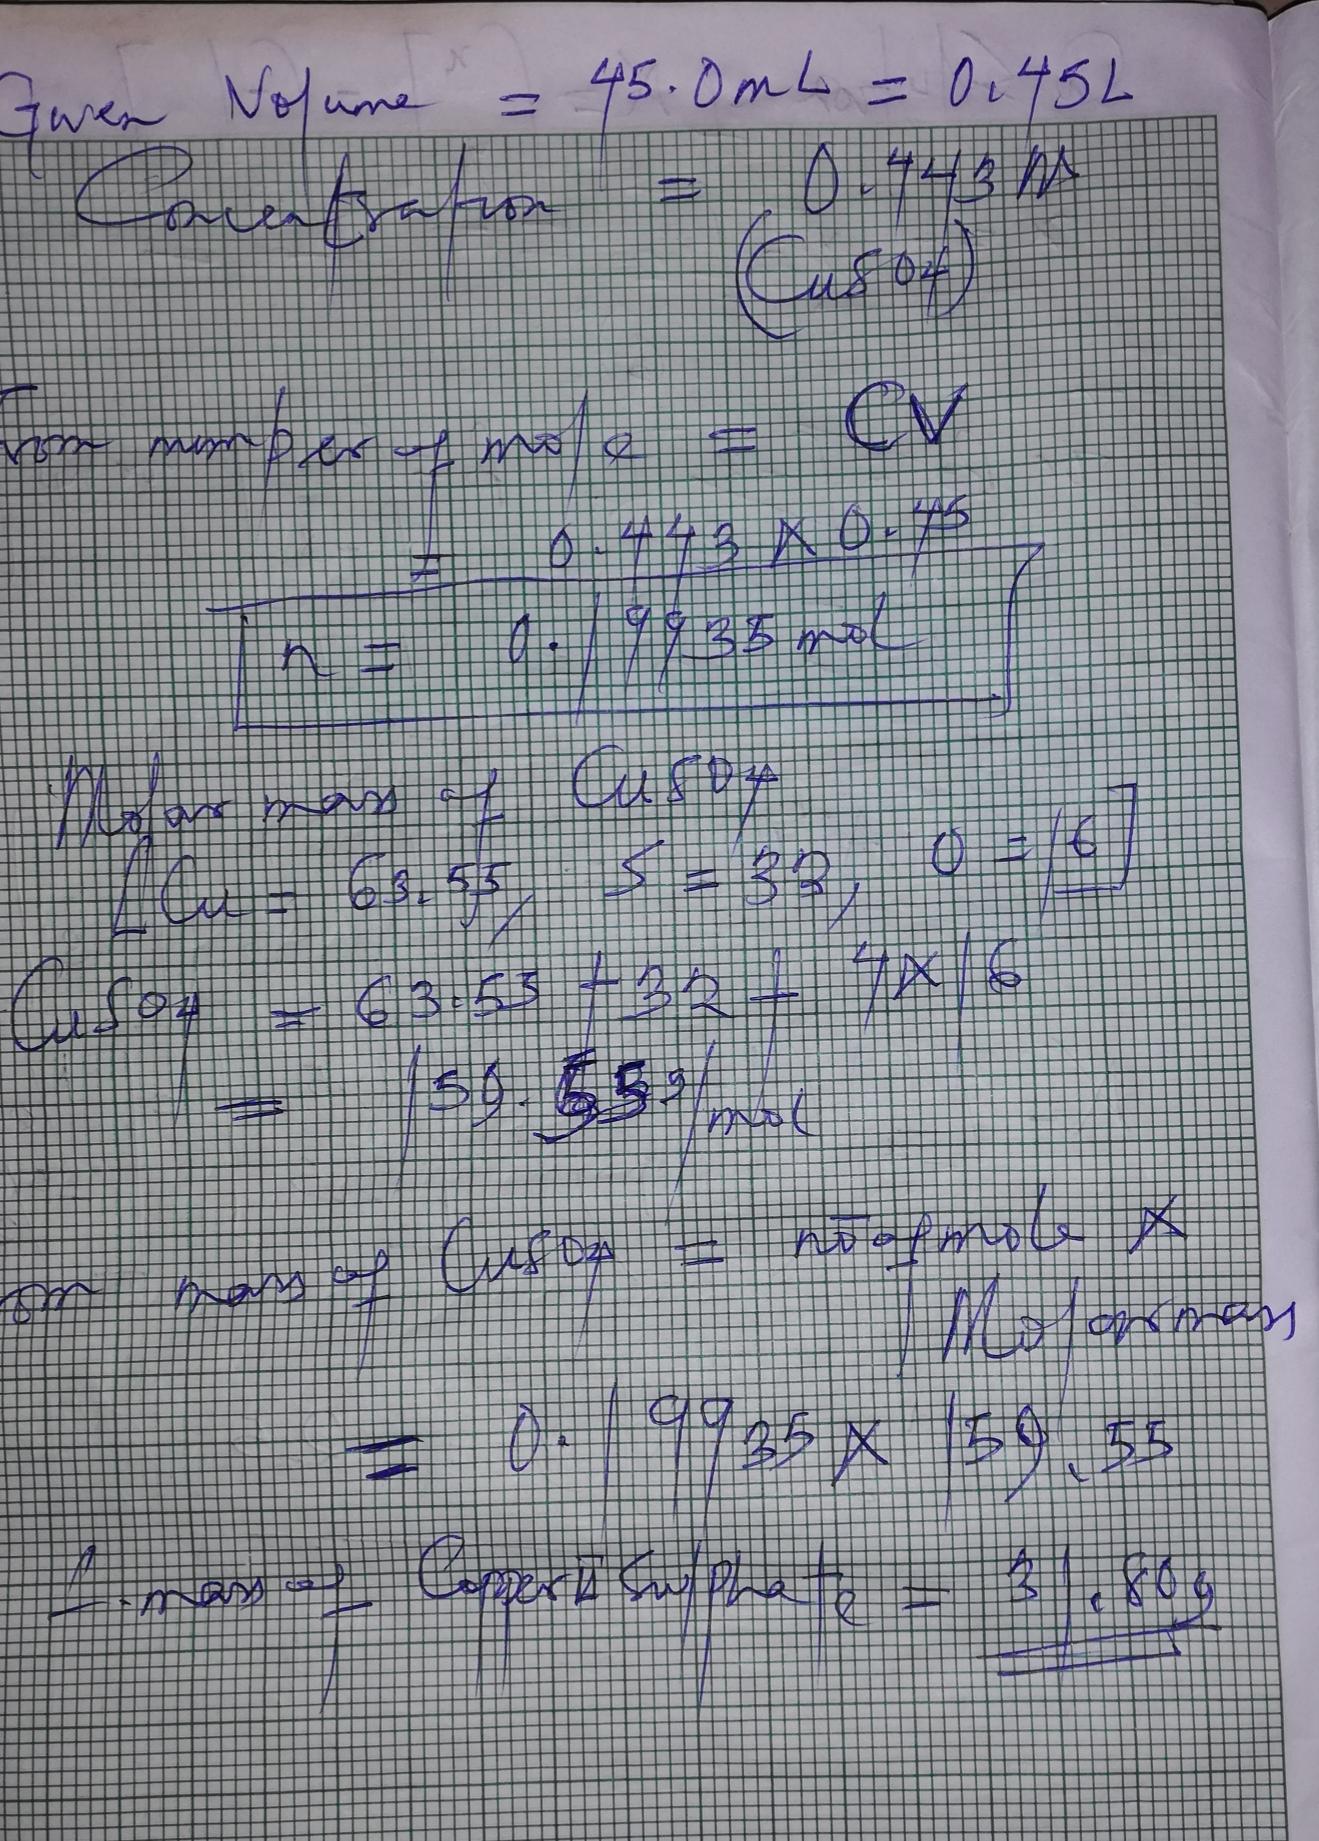 Given Volume = 45.0mL = 0.45L
Concentration = 0.443M
(CuSO4)
From number of mole = CV
= 0.443 x 0.45
n = 0.19935 mol
Molar mass of CuSO4
[Cu = 63.55, S = 32, O = 16]
CuSO4 = 63.55 + 32 + 4x16
= 159.55g/mol
From mass of CuSO4 = no of mole x
Molar mass
= 0.19935 x 159.55
mass of Copper II Sulphate = 31.80g